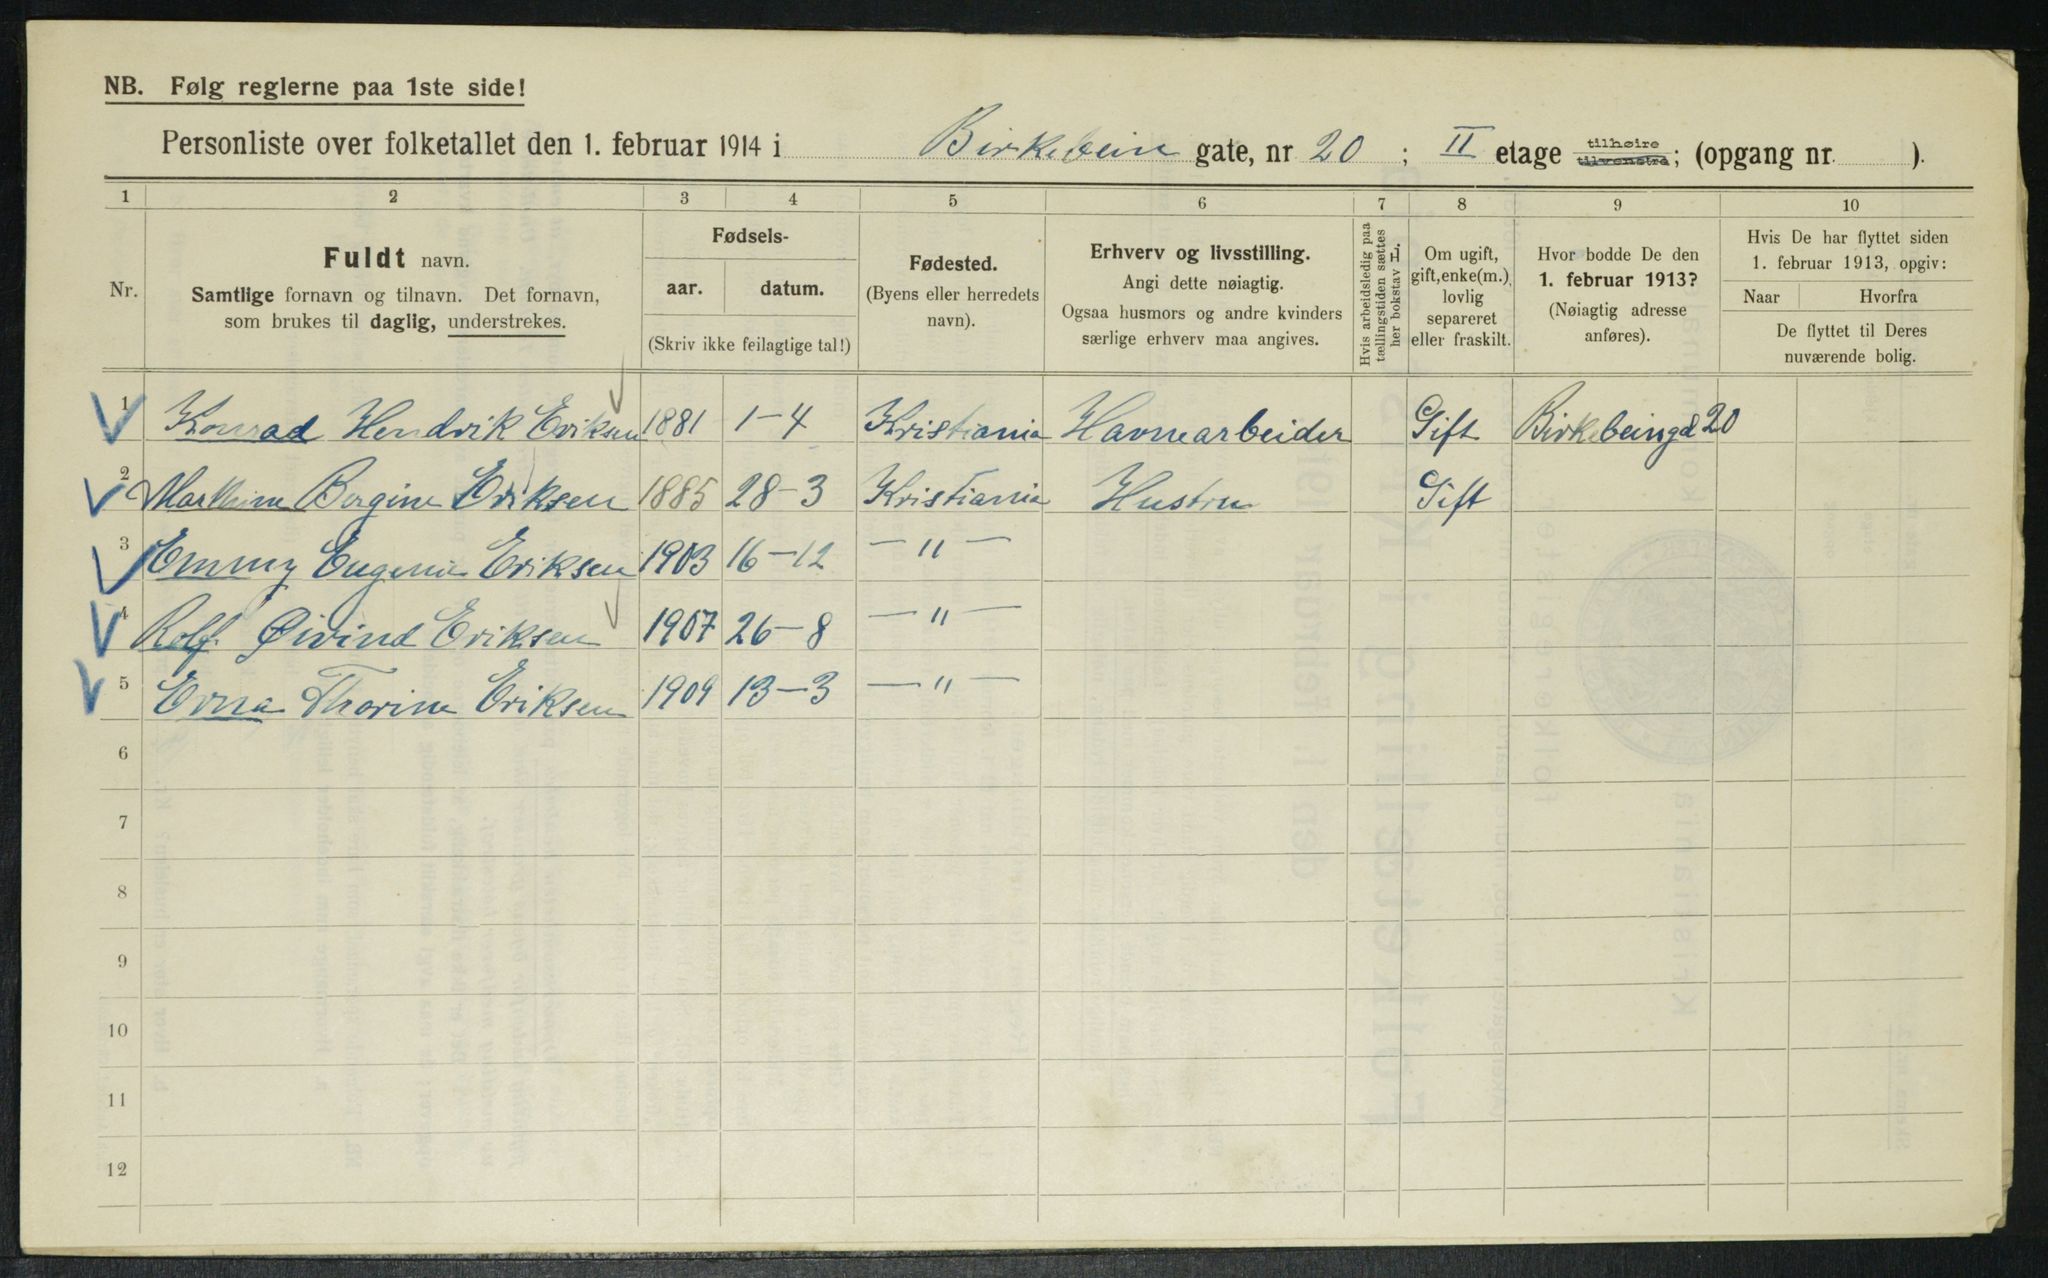 NB. Følg reglerne paa 1ste side!
Personliste over folketallet den 1. februar 1914 i Birkebein gate, nr 20 ; II etage tilhøire tilvenstre; (opgang nr. ).
1 2 3 4 5 6 7 8 9 10
Nr.
Fuldt navn.
Samtlige fornavn og tilnavn. Det fornavn,
som brukes til daglig, understrekes.
Fødsels-
aar. datum.
(Skriv ikke feilagtige tal!)
Fødested.
(Byens eller herredets
navn).
Erhverv og livsstilling.
Angi dette nøiagtig.
Ogsaa husmors og andre kvinders
særlige erhverv maa angives.
Hvis arbeidsledig paa
tællingstiden sættes
her bokstav L.
Om ugift,
gift, enke(m.),
lovlig
separeret
eller fraskilt.
Hvor bodde De den
1. februar 1913?
(Nøiagtig adresse
anføres).
Hvis De har flyttet siden
1. februar 1913, opgiv:
Naar Hvorfra
De flyttet til Deres
nuværende bolig.
1 Konrad Hendrik Eriksen 1881 1-4 Kristiania Havnearbeider Gift Birkebeingd 20
2 Marthine Bergine Eriksen 1885 28-3 Kristiania Hustru Gift
3 Emmy Eugenie Eriksen 1903 16-12 — " —
4 Rolf Øivind Eriksen 1907 26-8 — " —
5 Erna Thorine Eriksen 1909 13-3 — " —
6
7
8
9
10
11
12